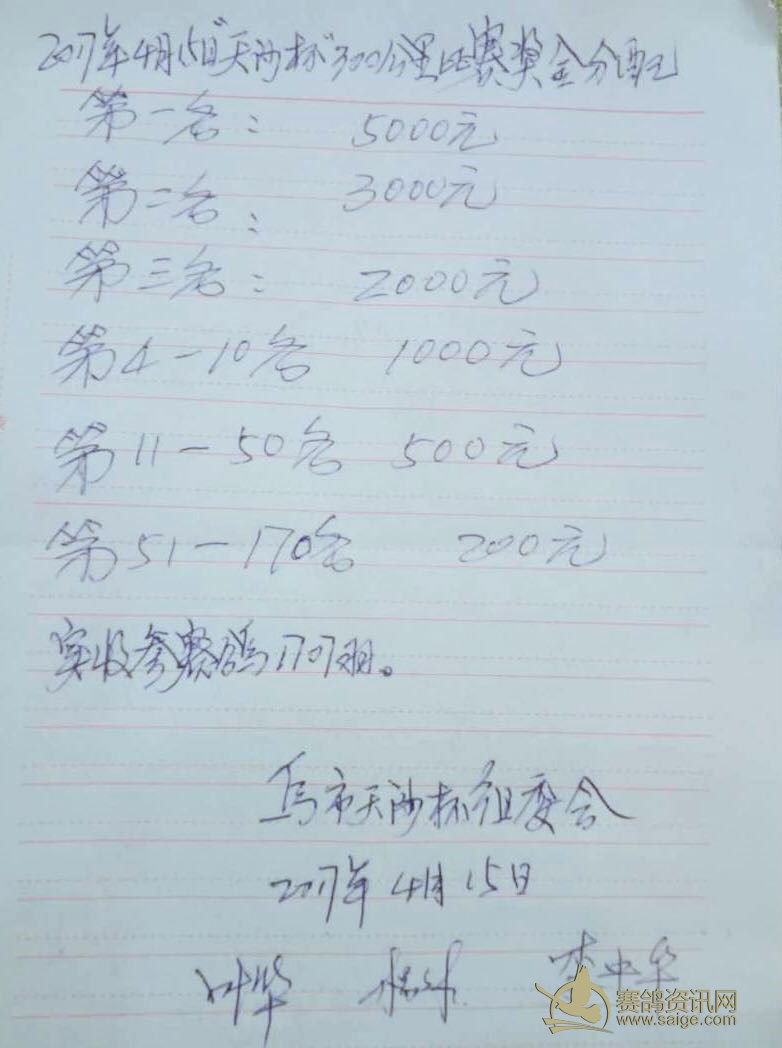 2017年4月15日"天沙杯"300公里比赛奖金分配
第一名: 5000元
第二名: 3000元
第三名: 2000元
第4-10名 1000元
第11-50名 500元
第51-170名 200元
实收参赛鸽1707羽。
乌市天沙杯组委会
2017年4月15日
叶华 李中华
赛鸽资讯网
www.saige.com